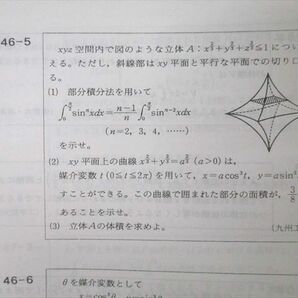 46-5
xyz空間内で図のような立体A：x^{2/3}+y^{2/3}+z^{2/3}≦1につい
える。ただし，斜線部はxy平面と平行な平面での切り口
る。
(1) 部分積分法を用いて
∫_0^{π/2} sin^n xdx = (n-1)/n ∫_0^{π/2} sin^{n-2} xdx
(n=2, 3, 4, ……)
を示せ。
(2) xy平面上の曲線 x^{2/3}+y^{2/3}=a^{2/3} (a>0)は，
媒介変数t(0≦t≦2π)を用いて，x=acos^3 t, y=asin^3
すことができる。この曲線で囲まれた部分の面積が，3/8
あることを示せ。
(3) 立体Aの体積を求めよ。
(九州工
46-6
θを媒介変数として